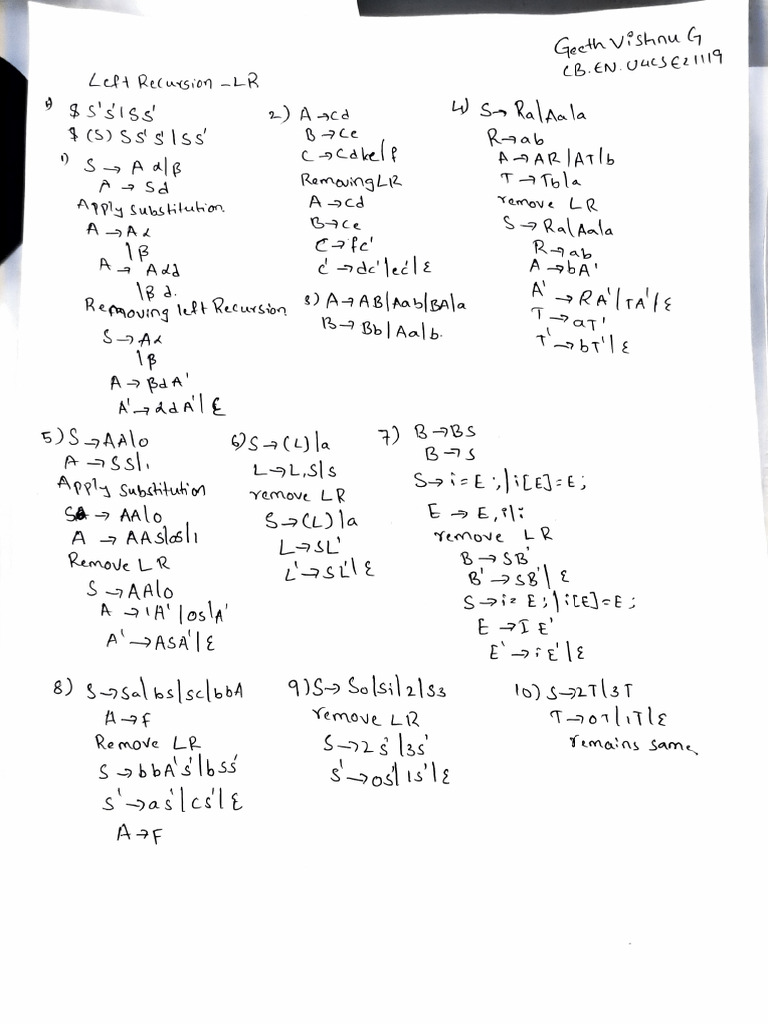 Geeth Vishnu G
CB.EN.U4CSE21119
Left Recursion - LR
$ S's' | SS'
$ (S) SS's' | SS'
1) S → A α | β
A → Sd
Apply substitution
A → Aα
| β
A → Aαd
| βd.
Removing left Recursion
S → Aα
| β
A → βdA'
A' → αdA' | ε
2) A → cd
B → Ce
C → Cd | Ce | f
Removing LR
A → cd
B → ce
C → fc'
c' → dc' | ec' | ε
3) A → AB | Aab | BA | a
B → Bb | Aa | b.
4) S → Ra | Aa | a
R → ab
A → AR | AT | b
T → Tb | a
remove LR
S → Ra | Aa | a
R → ab
A → bA'
A' → RA' | TA' | ε
T → aT'
T' → bT' | ε
5) S → AA | 0
A → SS | 1
Apply substitution
S → AA | 0
A → AAS | 0S | 1
Remove LR
S → AA | 0
A → 1A' | 0S | A'
A' → ASA' | ε
6) S → (L) | a
L → L,S | s
remove LR
S → (L) | a
L → SL'
L' → SL' | ε
7) B → BS
B → s
S → i = E ; | i[E] = E;
E → E, i | i
remove LR
B → SB'
B' → SB' | ε
S → i = E; | i[E] = E;
E → I E'
E' → iE' | ε
8) S → Sa | bs | sc | bbA
A → F
Remove LR
S → bbA's' | bss'
S' → as' | cs' | ε
A → F
9) S → S0 | S1 | 2 | S3
remove LR
S → 2s' | 3s'
S' → 0s' | 1s' | ε
10) S → 2T | 3T
T → 0T | 1T | ε
remains same